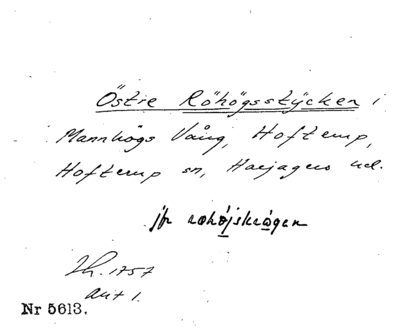 Östre Röhögsstycken i
Mannhögs Vång, Hofterup,
Hofterup sn, Harjagers hd.
jfr rohöjskrogen
Lh. 1757
akt 1.
Nr 5613.